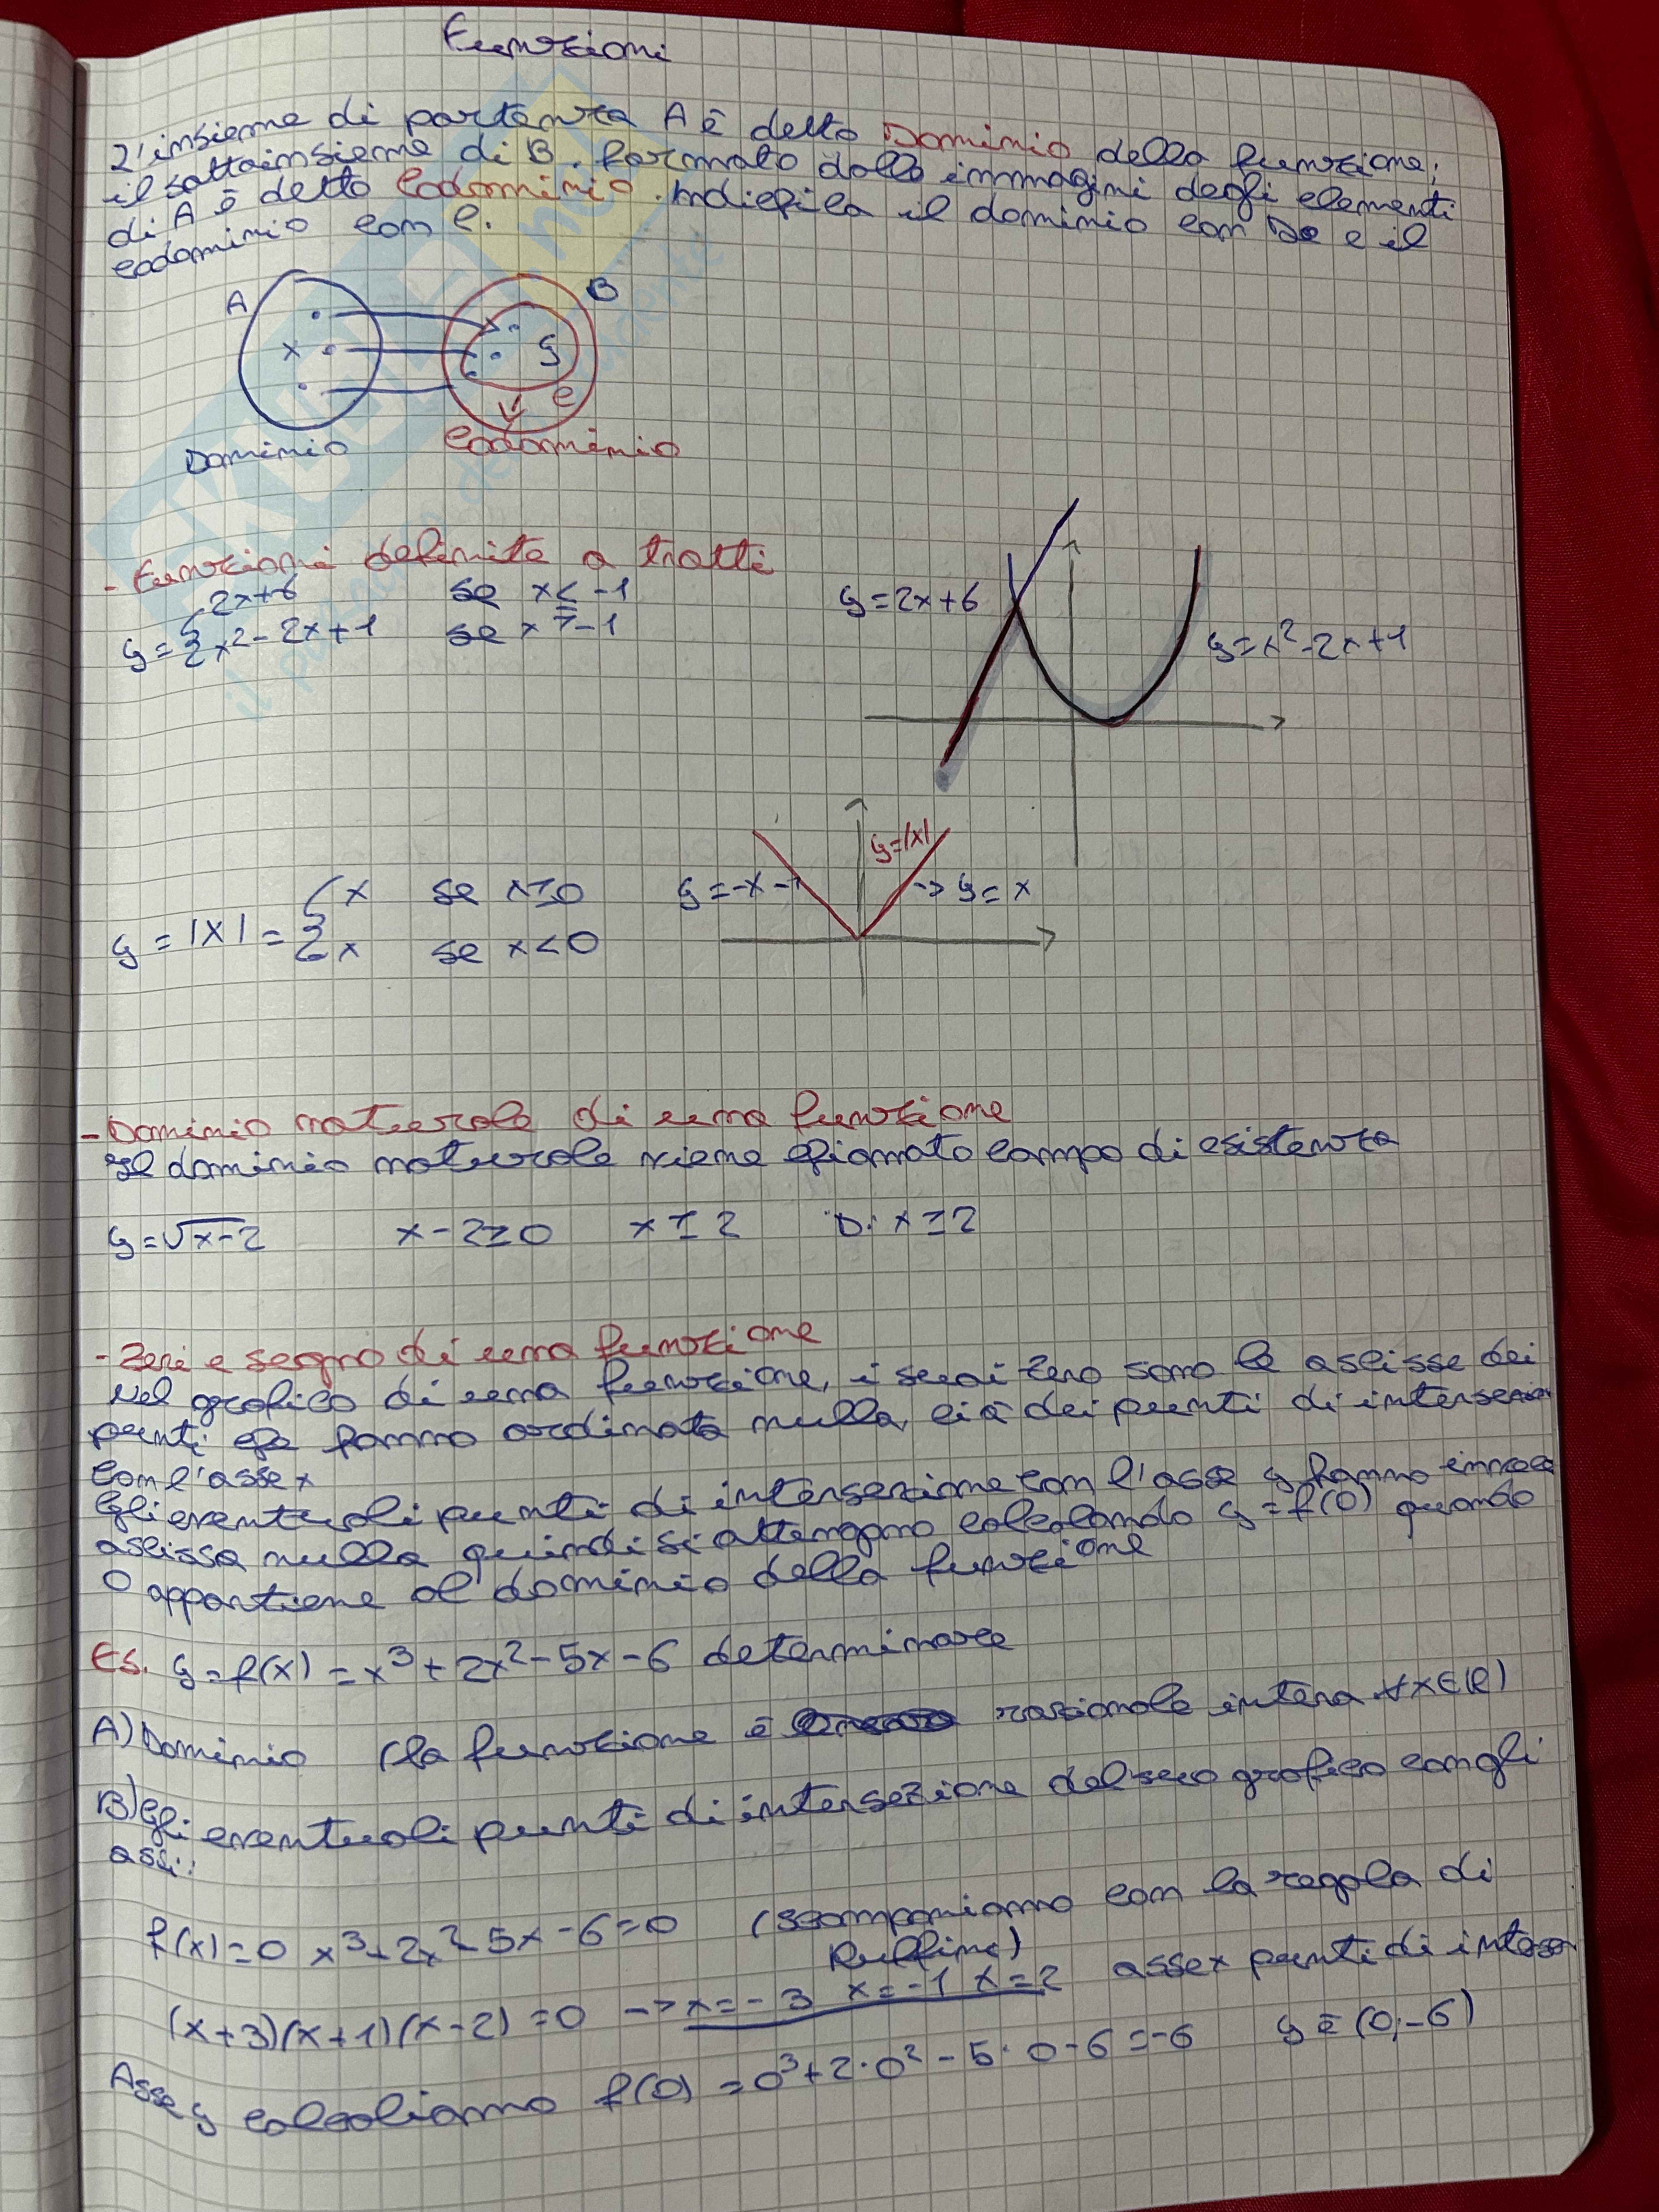 Funzioni
L'insieme di partenza A è detto Dominio della funzione;
il sottoinsieme di B. formato dalle immagini degli elementi
di A è detto Codominio. Indichiia il dominio con De e il
codominio con C.
A B
x y
C
Dominio Codominio
- Funzioni definite a tratti
2x+6 se x< -1
y={x²-2x+1 se x ≥-1
y=2x+6
y=x²-2x+1
y=|x|
x se x≥0 y=-x → y=x
y = |x| = { x se x<0
- Dominio naturale di una funzione
Il dominio naturale viene chiamato campo di esistenza
y=√x-2 x-2≥0 x≥2 D: x≥2
- Zeri e segno di una funzione
Nel grafico di una funzione, i suoi zero sono le ascisse dei
punti che hanno ordinata nulla, ciò dei punti di intersezion
con l'asse x
Gli eventuali punti di intersezione con l'asse y hanno invece
ascissa nulla quindi si ottengono calcolando y=f(0) quando
0 appartiene al dominio della funzione
Es. y=f(x) = x³+2x²-5x-6 determinare
A) Dominio (la funzione è razionale intera ∀x∈R)
B) Gli eventuali punti di intersezione del suo grafico con gli
assi:
f(x)=0 x³+2x²-5x-6=0 (scomponiamo con la regola di
Ruffini)
(x+3)(x+1)(x-2)=0 → x=-3 x=-1 x=2 asse x punti di inters
Asse y calcoliamo f(0) =0³+2·0²-5·0-6=-6 y è (0;-6)